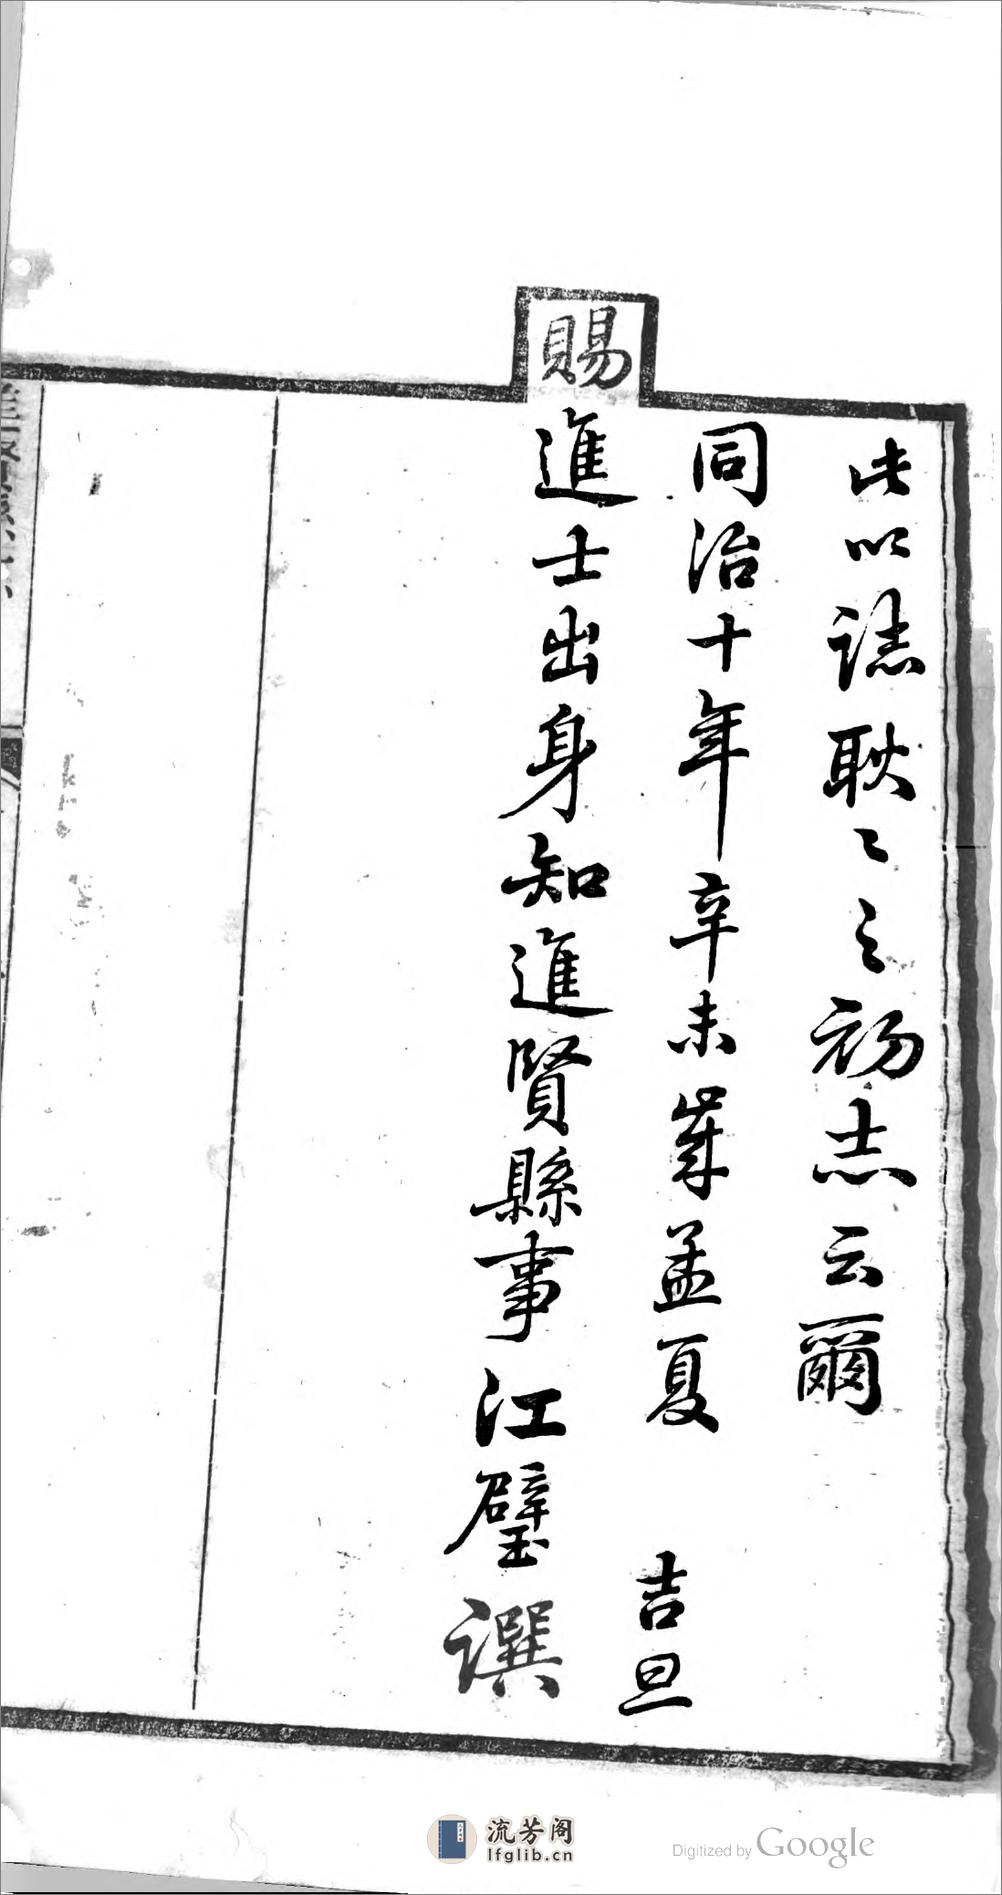 此以誌耿〻之初志云爾
同治十年辛未嵗孟夏　吉旦
賜進士出身知進賢縣事江璧譔
進賢縣志
流芳阁
lfglib.cn
Digitized by Google